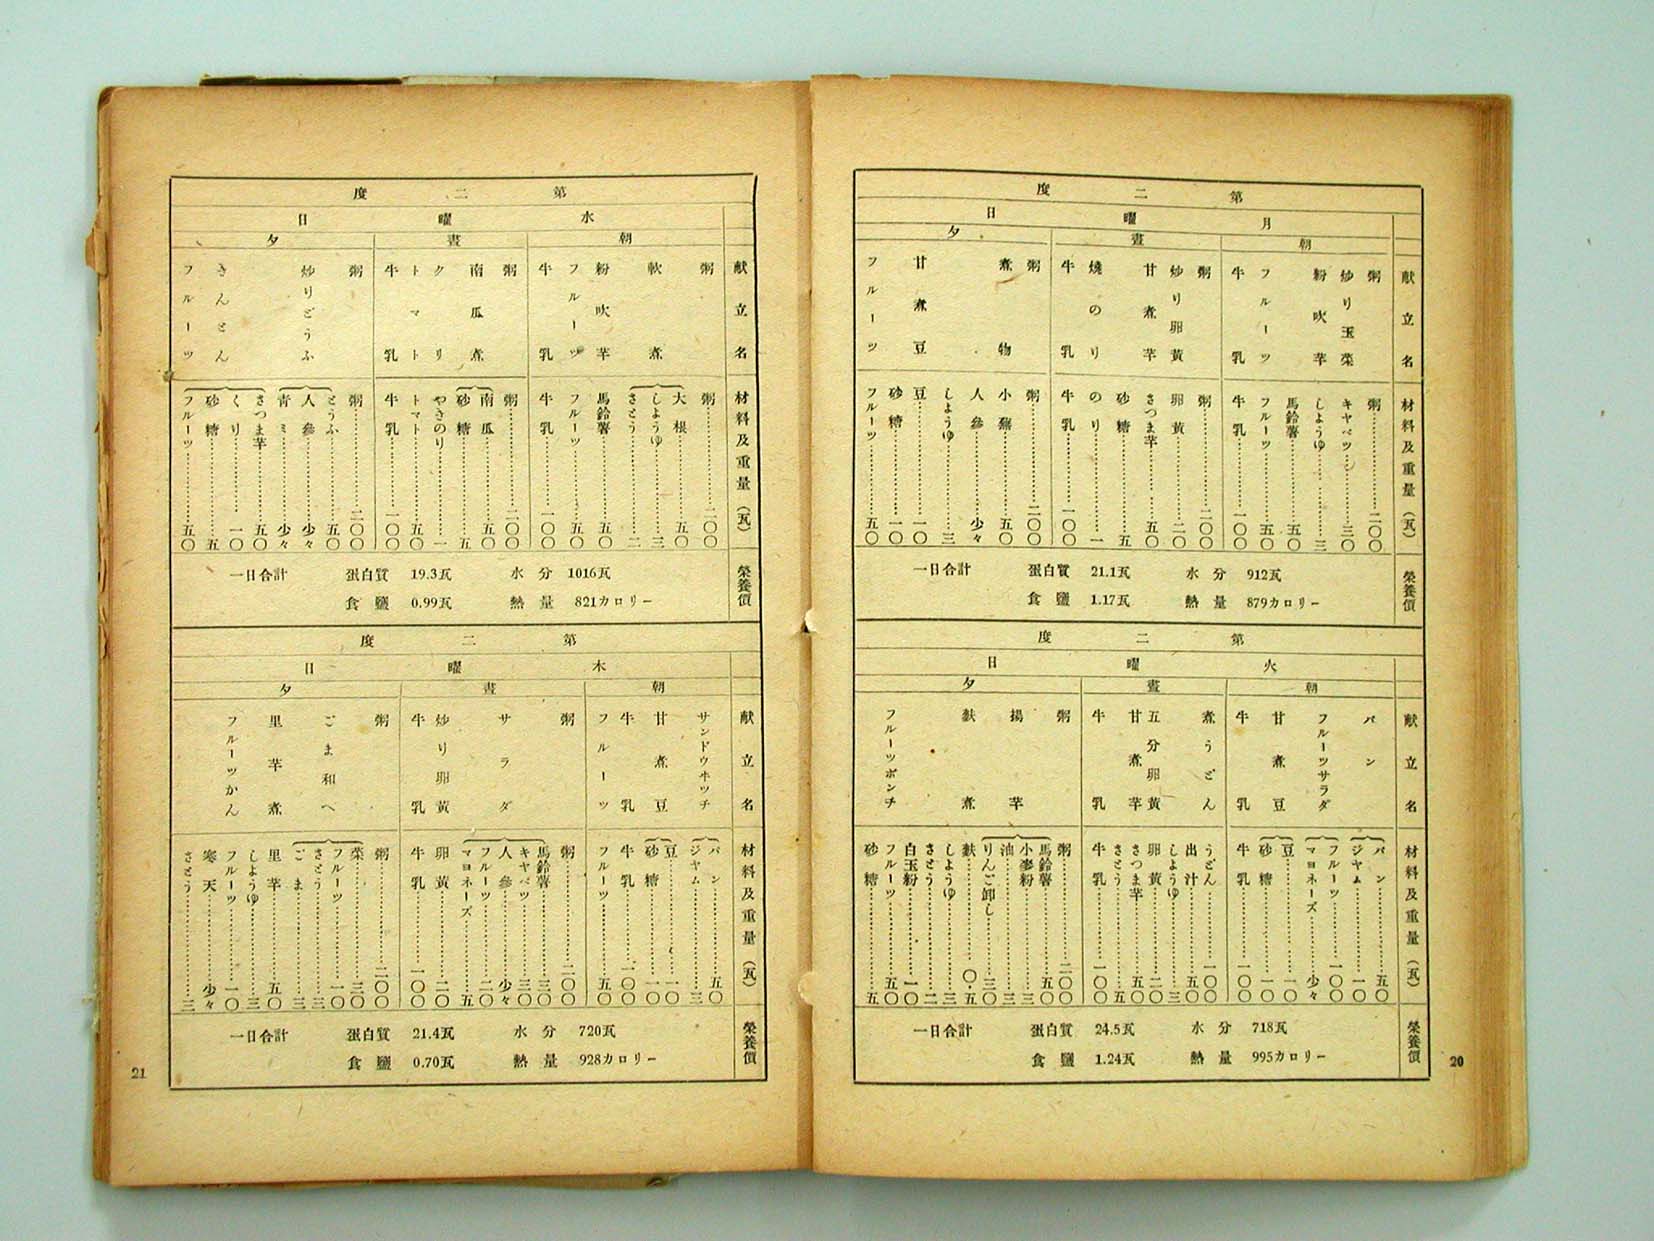 第二度
月曜日
朝
晝
夕
献立名
粥
炒り玉菜
粉吹芋
フルーツ
牛乳
粥
炒り卵黄
甘煮芋
燒のり
牛乳
粥
煮物
甘煮豆
フルーツ
材料及重量(瓦)
粥……二〇〇
キャベツ……三〇
しようゆ……三
馬鈴薯……五〇
フルーツ……五〇
牛乳……一〇〇
粥……二〇〇
卵黄……二〇
さつま芋……五〇
砂糖……五
のり……一
牛乳……一〇〇
粥……二〇〇
小蕪……五〇
人參……少々
しようゆ……三
豆……一〇
砂糖……一〇
フルーツ……五〇
榮養價
一日合計 蛋白質 21.1瓦 水分 912瓦
食鹽 1.17瓦 熱量 879カロリー
第二度
火曜日
朝
晝
夕
献立名
パン
フルーツサラダ
甘煮豆
牛乳
煮うどん
五分卵黄
甘煮芋
牛乳
粥
揚芋
麩煮
フルーツポンチ
材料及重量(瓦)
パン……五〇
ジヤム……一〇
フルーツ……一〇〇
マヨネーズ……少々
豆……一〇
砂糖……一〇
牛乳……一〇〇
うどん……一〇〇
出汁……五〇
しようゆ……三
卵黄……二〇
さつま芋……五〇
さとう……五
牛乳……一〇〇
粥……二〇〇
馬鈴薯……五〇
小麥粉……三
油……三
りんご卸し……三〇
麩……〇・五
しようゆ……三
さとう……二
白玉粉……一〇
フルーツ……五〇
砂糖……五
榮養價
一日合計 蛋白質 24.5瓦 水分 718瓦
食鹽 1.24瓦 熱量 995カロリー
20
第二度
水曜日
朝
晝
夕
献立名
粥
軟煮
粉吹芋
フルーツ
牛乳
粥
南瓜煮
クリ
トマト
牛乳
粥
炒りどうふ
きんとん
フルーツ
材料及重量(瓦)
粥……二〇〇
大根……五〇
しようゆ……三
さとう……二
馬鈴薯……五〇
フルーツ……五〇
牛乳……一〇〇
粥……二〇〇
南瓜……五〇
砂糖……五
やきのり……一
トマト……五〇
牛乳……一〇〇
粥……二〇〇
とうふ……五〇
人參……少々
青ミ……少々
さつま芋……五〇
くり……一〇
砂糖……五
フルーツ……五〇
榮養價
一日合計 蛋白質 19.3瓦 水分 1016瓦
食鹽 0.99瓦 熱量 821カロリー
第二度
木曜日
朝
晝
夕
献立名
サンドウヰツチ
甘煮豆
牛乳
フルーツ
粥
サラダ
炒り卵黄
牛乳
粥
ごま和へ
里芋煮
フルーツかん
材料及重量(瓦)
パン……五〇
ジヤム……三
豆……一〇
砂糖……一〇
牛乳……一〇〇
フルーツ……五〇
粥……二〇〇
馬鈴薯……三〇
キヤベツ……三〇
人參……少々
フルーツ……二〇
マヨネーズ……五
卵黄……二〇
牛乳……一〇〇
粥……二〇〇
菜……三〇
フルーツ……一〇
さとう……三
ごま……三
里芋……五〇
しようゆ……三
フルーツ……一〇
寒天……少々
さとう……三
榮養價
一日合計 蛋白質 21.4瓦 水分 720瓦
食鹽 0.70瓦 熱量 928カロリー
21